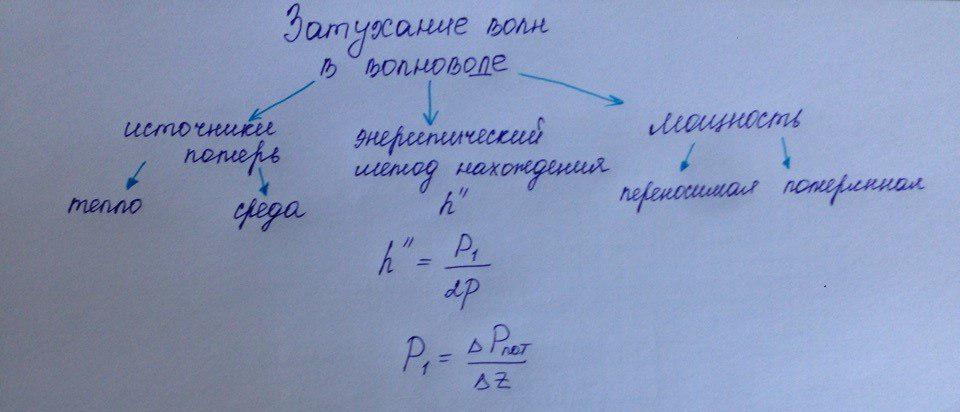 Затухание волн
в волноводе
источники
потерь
тепло
среда
энергитический
метод нахождения
h"
h" = P₁ / 2P
P₁ = ΔPпот / Δz
Мощность
переносимая потерянная